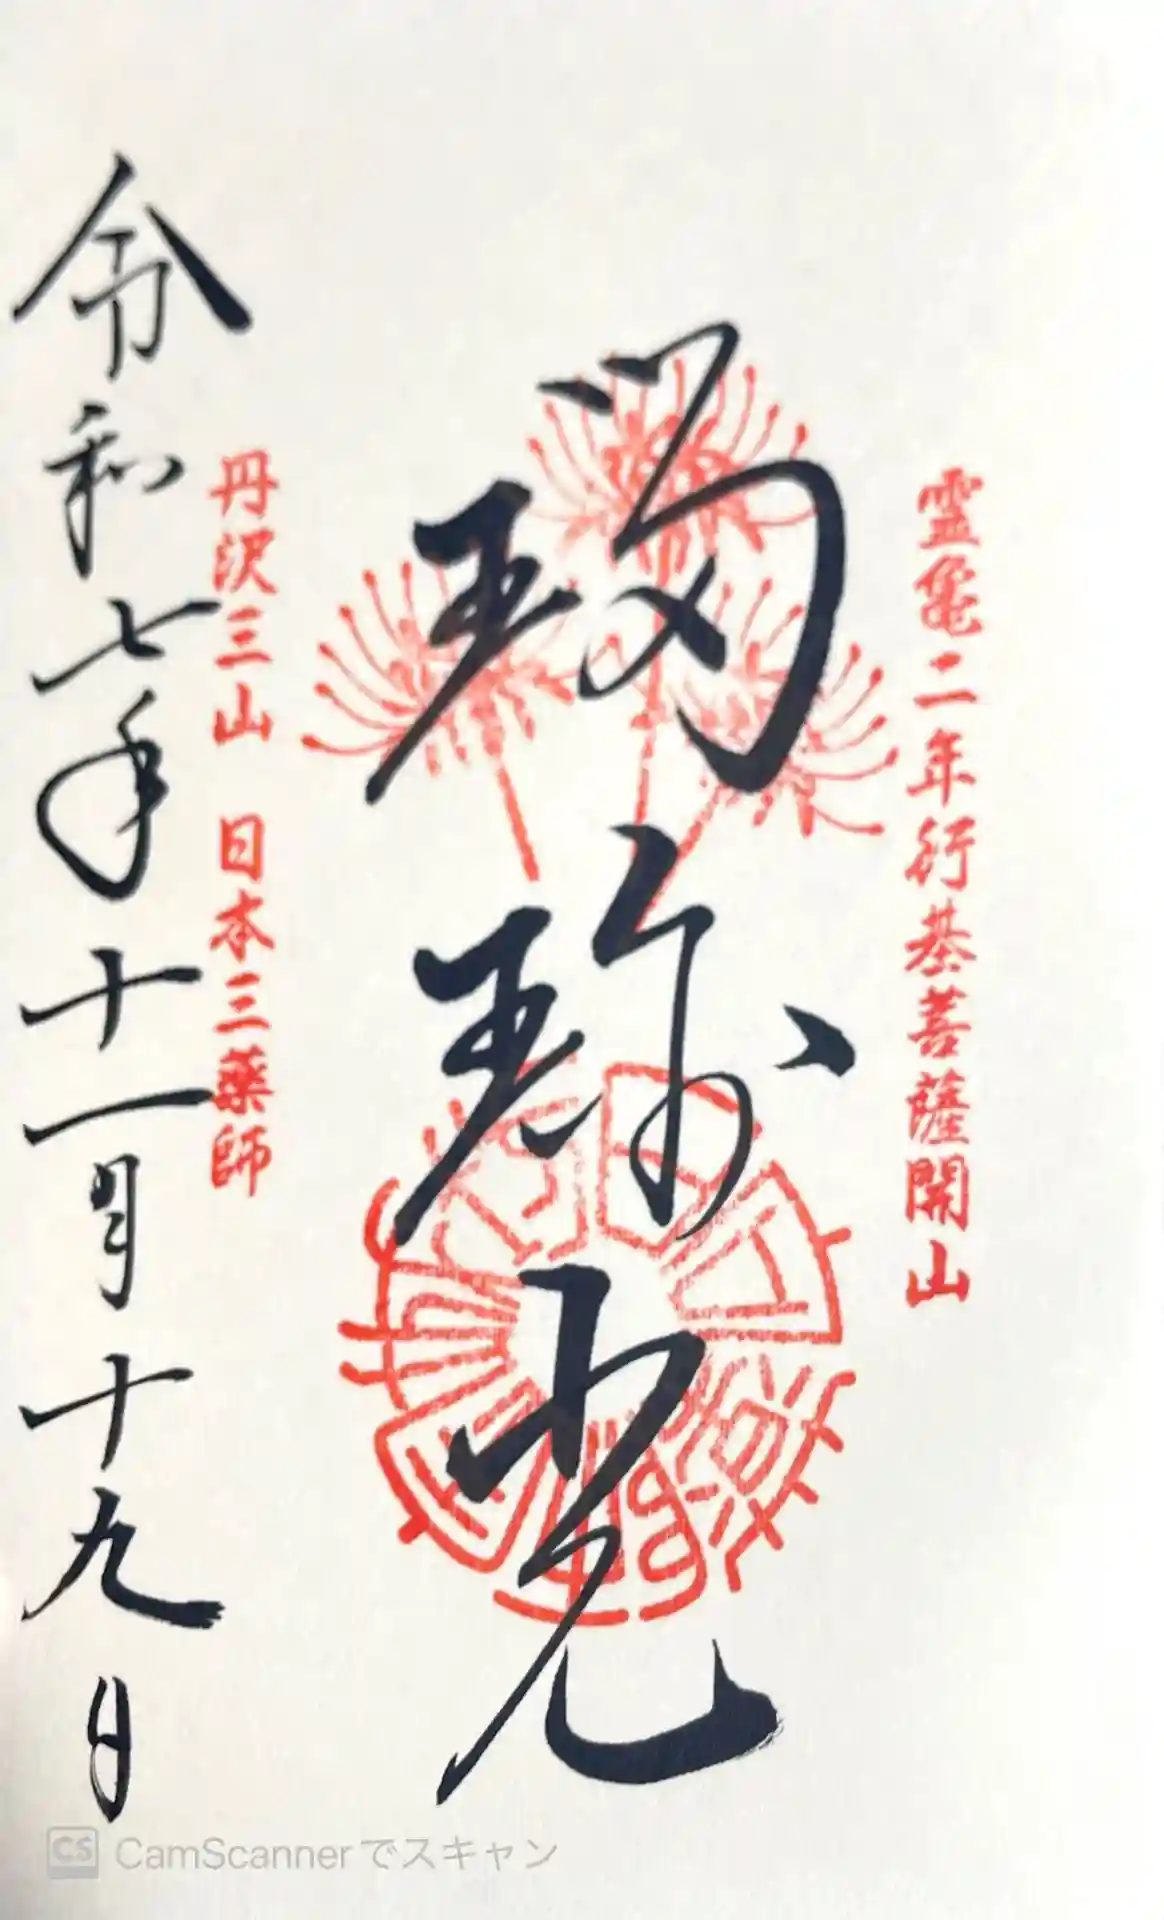 霊亀二年行基菩薩開山
瑠璃光
丹沢三山 日本三薬師
令和七年十一月十九日
CS CamScannerでスキャン